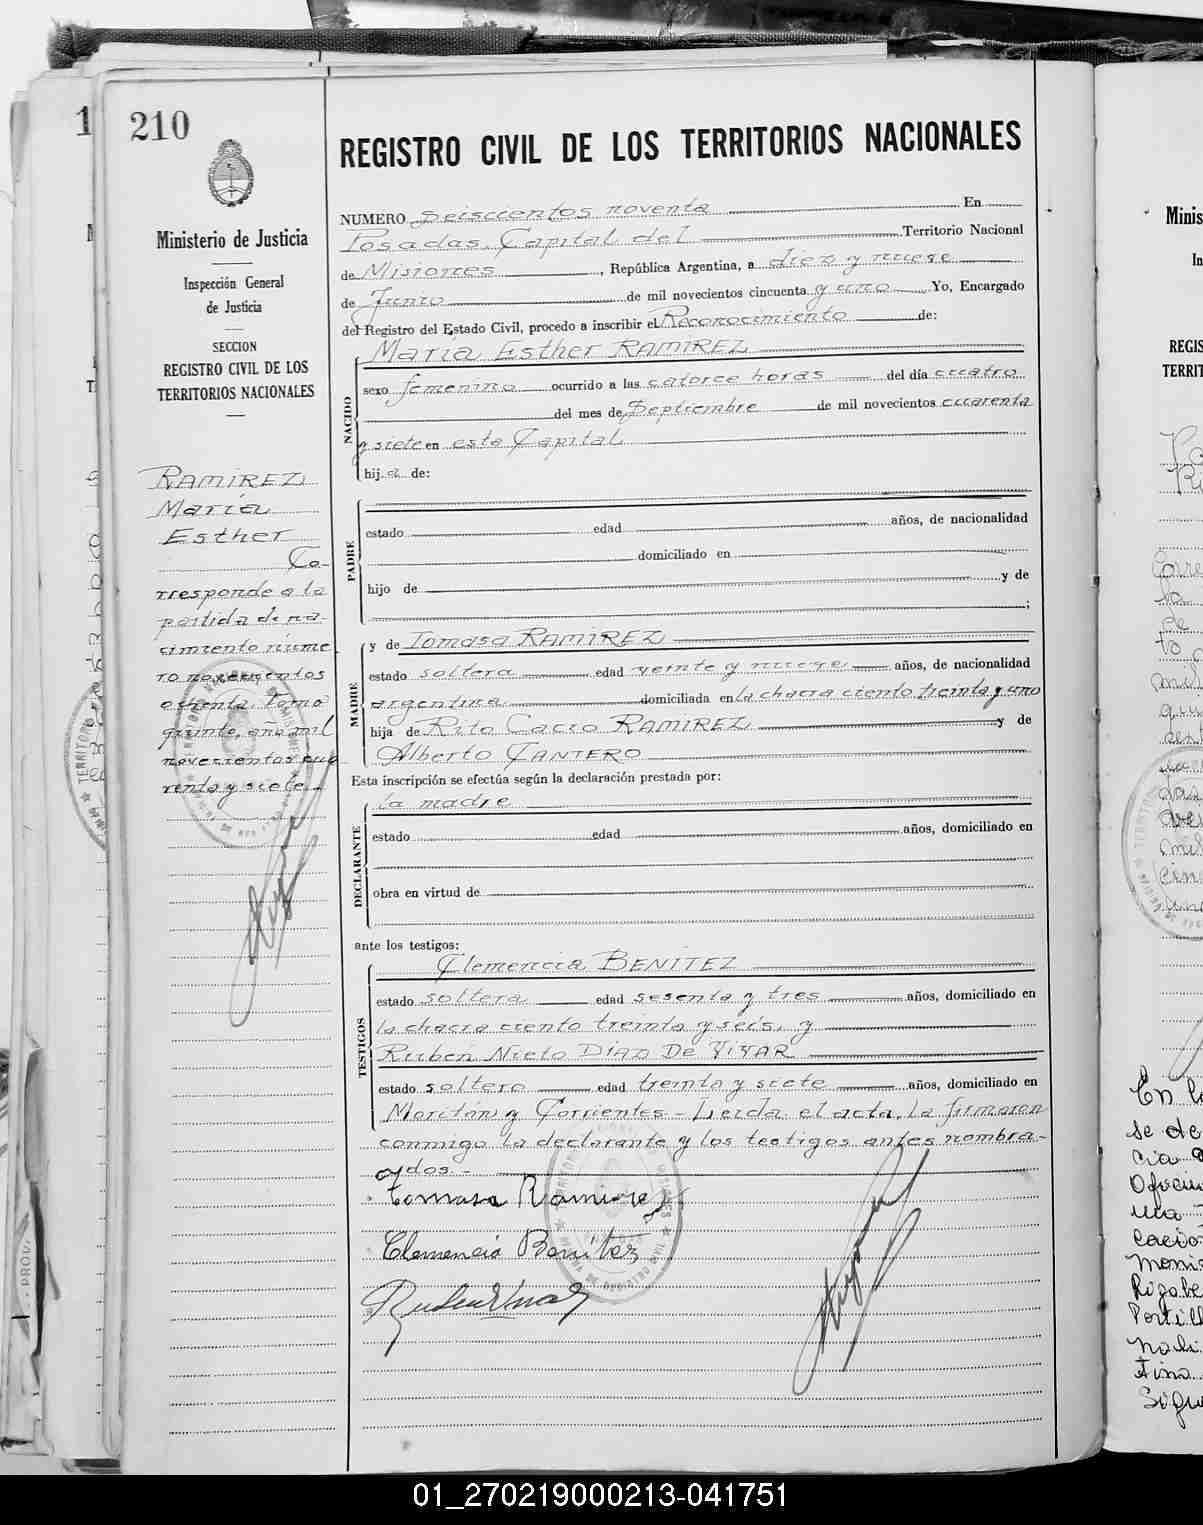 210
Ministerio de Justicia
Inspección General
de Justicia
SECCION
REGISTRO CIVIL DE LOS
TERRITORIOS NACIONALES
RAMIREZ
María
Esther
Co-
rresponde a la
partida de na-
cimiento núme
ro novecientos
ochenta, Tomo
quinto, año mil
novecientos cua
renta y siete.-
REGISTRO CIVIL DE LOS TERRITORIOS NACIONALES
NUMERO Seiscientos noventa En
Posadas, Capital del Territorio Nacional
de Misiones, República Argentina, a diez y nueve
de Junio de mil novecientos cincuenta y uno Yo, Encargado
del Registro del Estado Civil, procedo a inscribir el Reconocimiento de:
NACIDO
María Esther RAMIREZ
sexo femenino ocurrido a las catorce horas del día cuatro
del mes de Septiembre de mil novecientos cuarenta
y siete en esta Capital
hija de:
PADRE
estado edad años, de nacionalidad
domiciliado en
hijo de y de
;
MADRE
y de Tomasa RAMIREZ
estado soltera edad veinte y nueve años, de nacionalidad
argentina domiciliada en la chacra ciento treinta y uno
hija de Rito Cacio RAMIREZ y de
Alberto CANTERO
Esta inscripción se efectúa según la declaración prestada por:
DECLARANTE
la madre
estado edad años, domiciliado en
obra en virtud de
ante los testigos:
TESTIGOS
Clemencia BENITEZ
estado soltera edad sesenta y tres años, domiciliado en
la chacra ciento treinta y seis, y
Rubén Nieto Diaz De Vivar
estado soltero edad treinta y siete años, domiciliado en
Moritán y Corrientes - Leida el acta, la firmaron
conmigo la declarante y los testigos antes nombra-
dos.-
Tomasa Ramirez
Clemencia Benitez
01_270219000213-041751